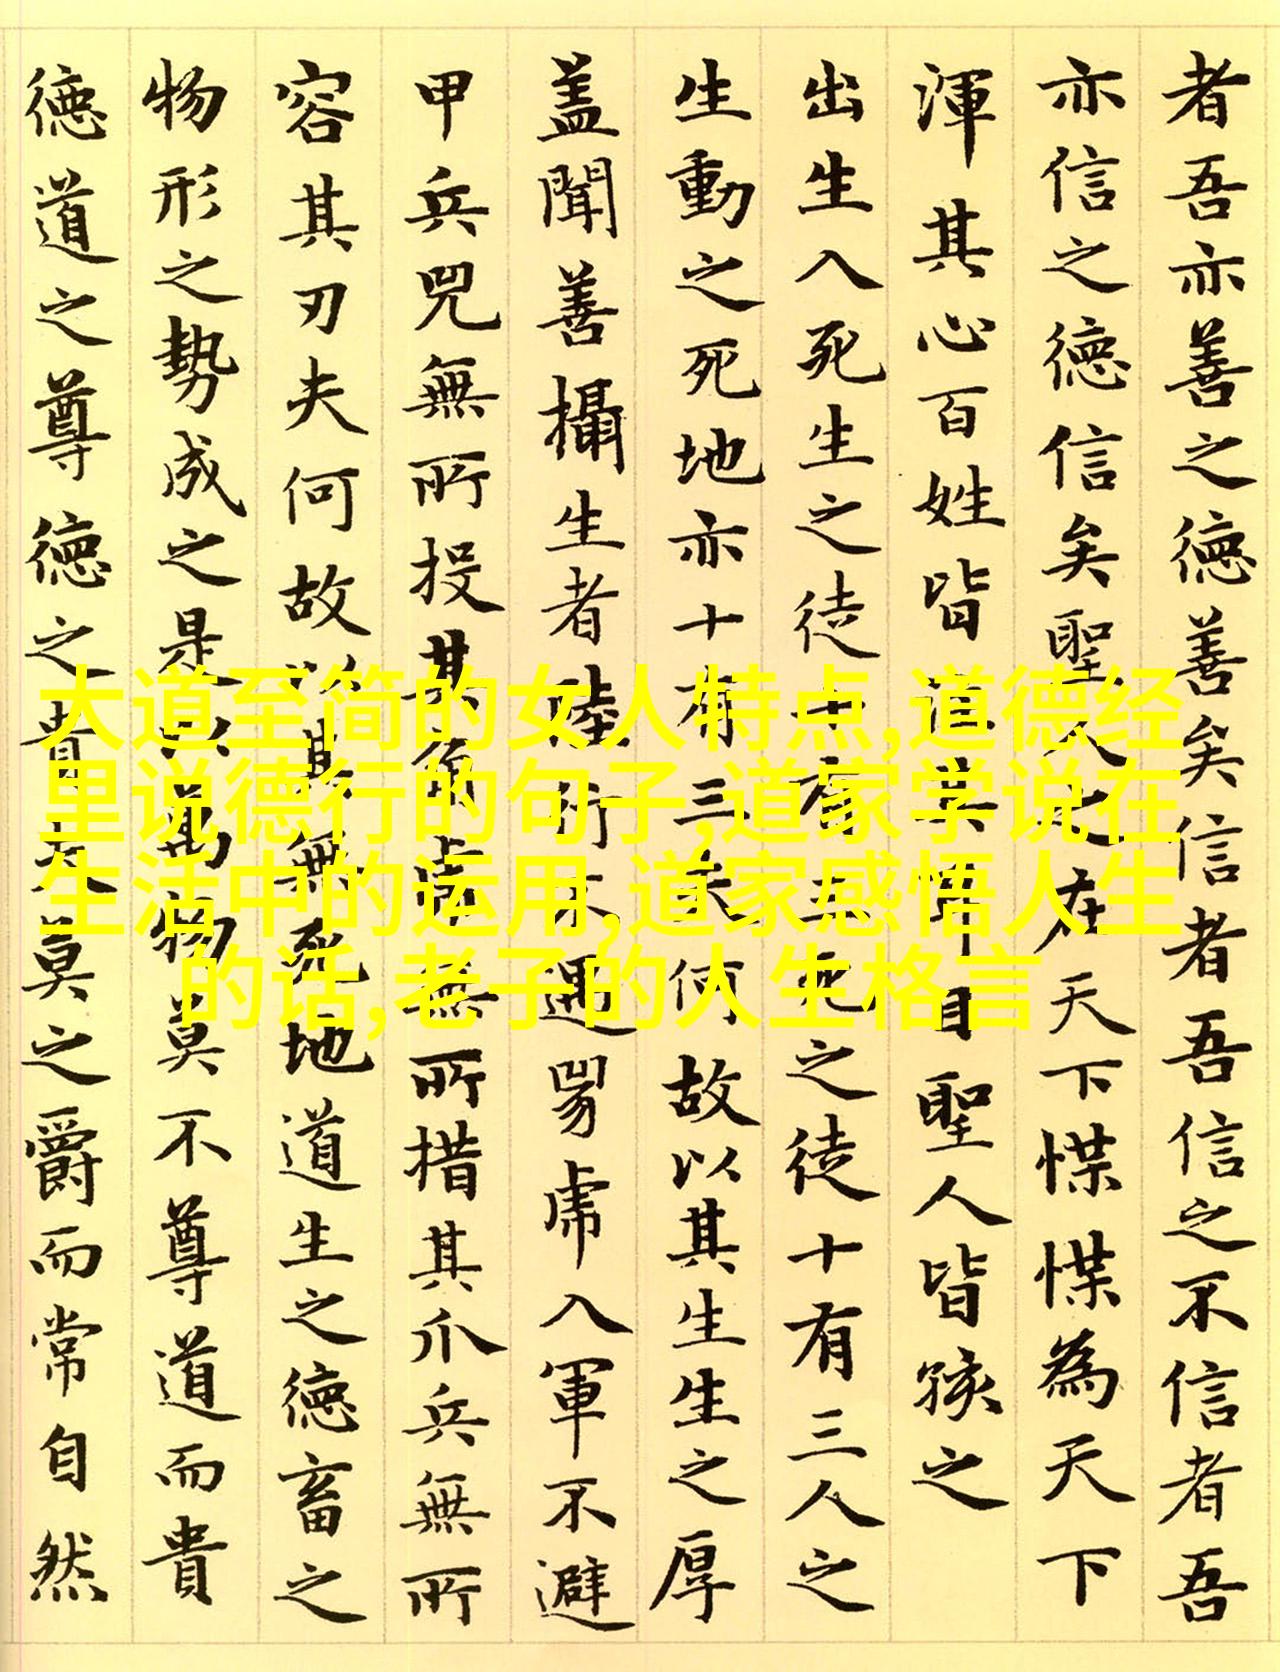 者吾亦善之德善矣信者吾信之不信者吾
亦信之德信矣聖人之在天下惵惵為天下
渾其心百姓皆注其耳目聖人皆孩之
出生入死生之徒十有三死之徒十有三人之
生動之死地亦十有三夫何故以其生生之厚
蓋聞善攝生者陸行不遇兕虎入軍不避
甲兵兕無所投其角虎無所措其爪兵無所
容其刃夫何故以其無死地道生之德畜之
物形之勢成之是以萬物莫不尊道而貴
德道之尊德之貴夫莫之爵而常自然
大道至简的女人特点,道德经
里说德行的句子,道家学说在
生活中的运用,道家感悟人生
的话,老子的人生格言